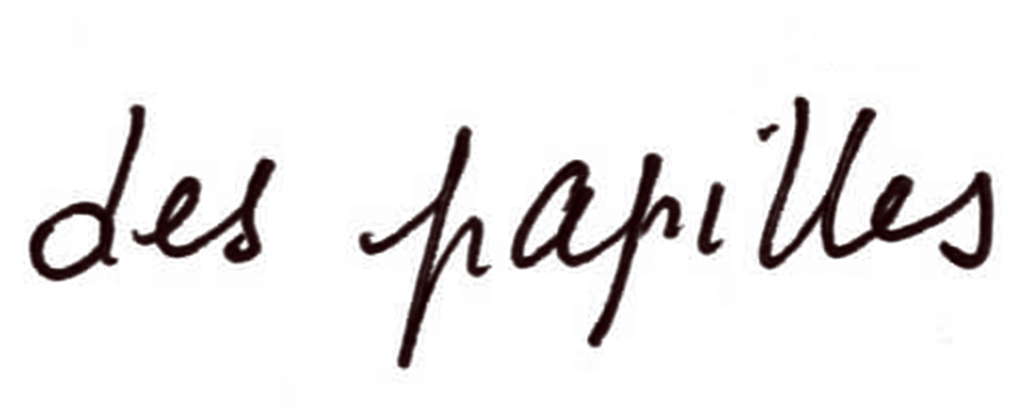 des papilles